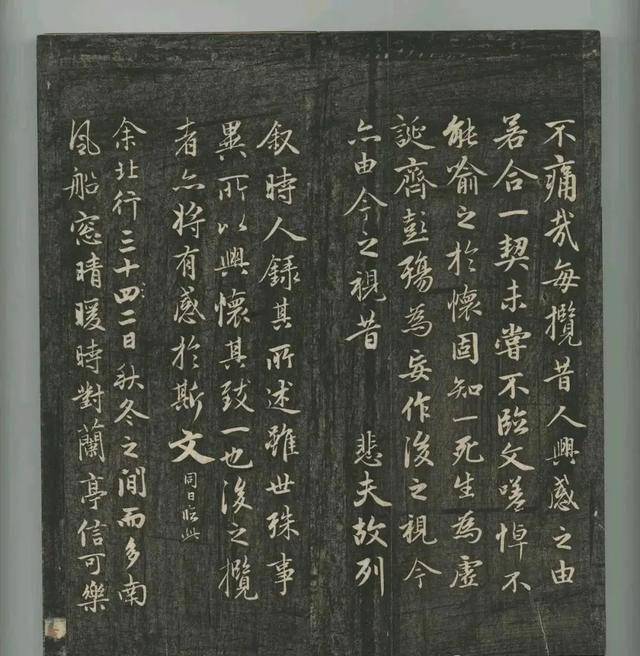 不痛哉每攬昔人興感之由
若合一契未嘗不臨文嗟悼不
能喻之於懷固知一死生為虛
誕齊彭殤為妄作後之視今
亦由今之視昔 悲夫故列
叙時人錄其所述雖世殊事
異所以興懷其致一也後之攬
者亦將有感於斯文
同日臨
余北行三十四二日秋冬之間而多南
風船窓晴暖時對蘭亭信可樂